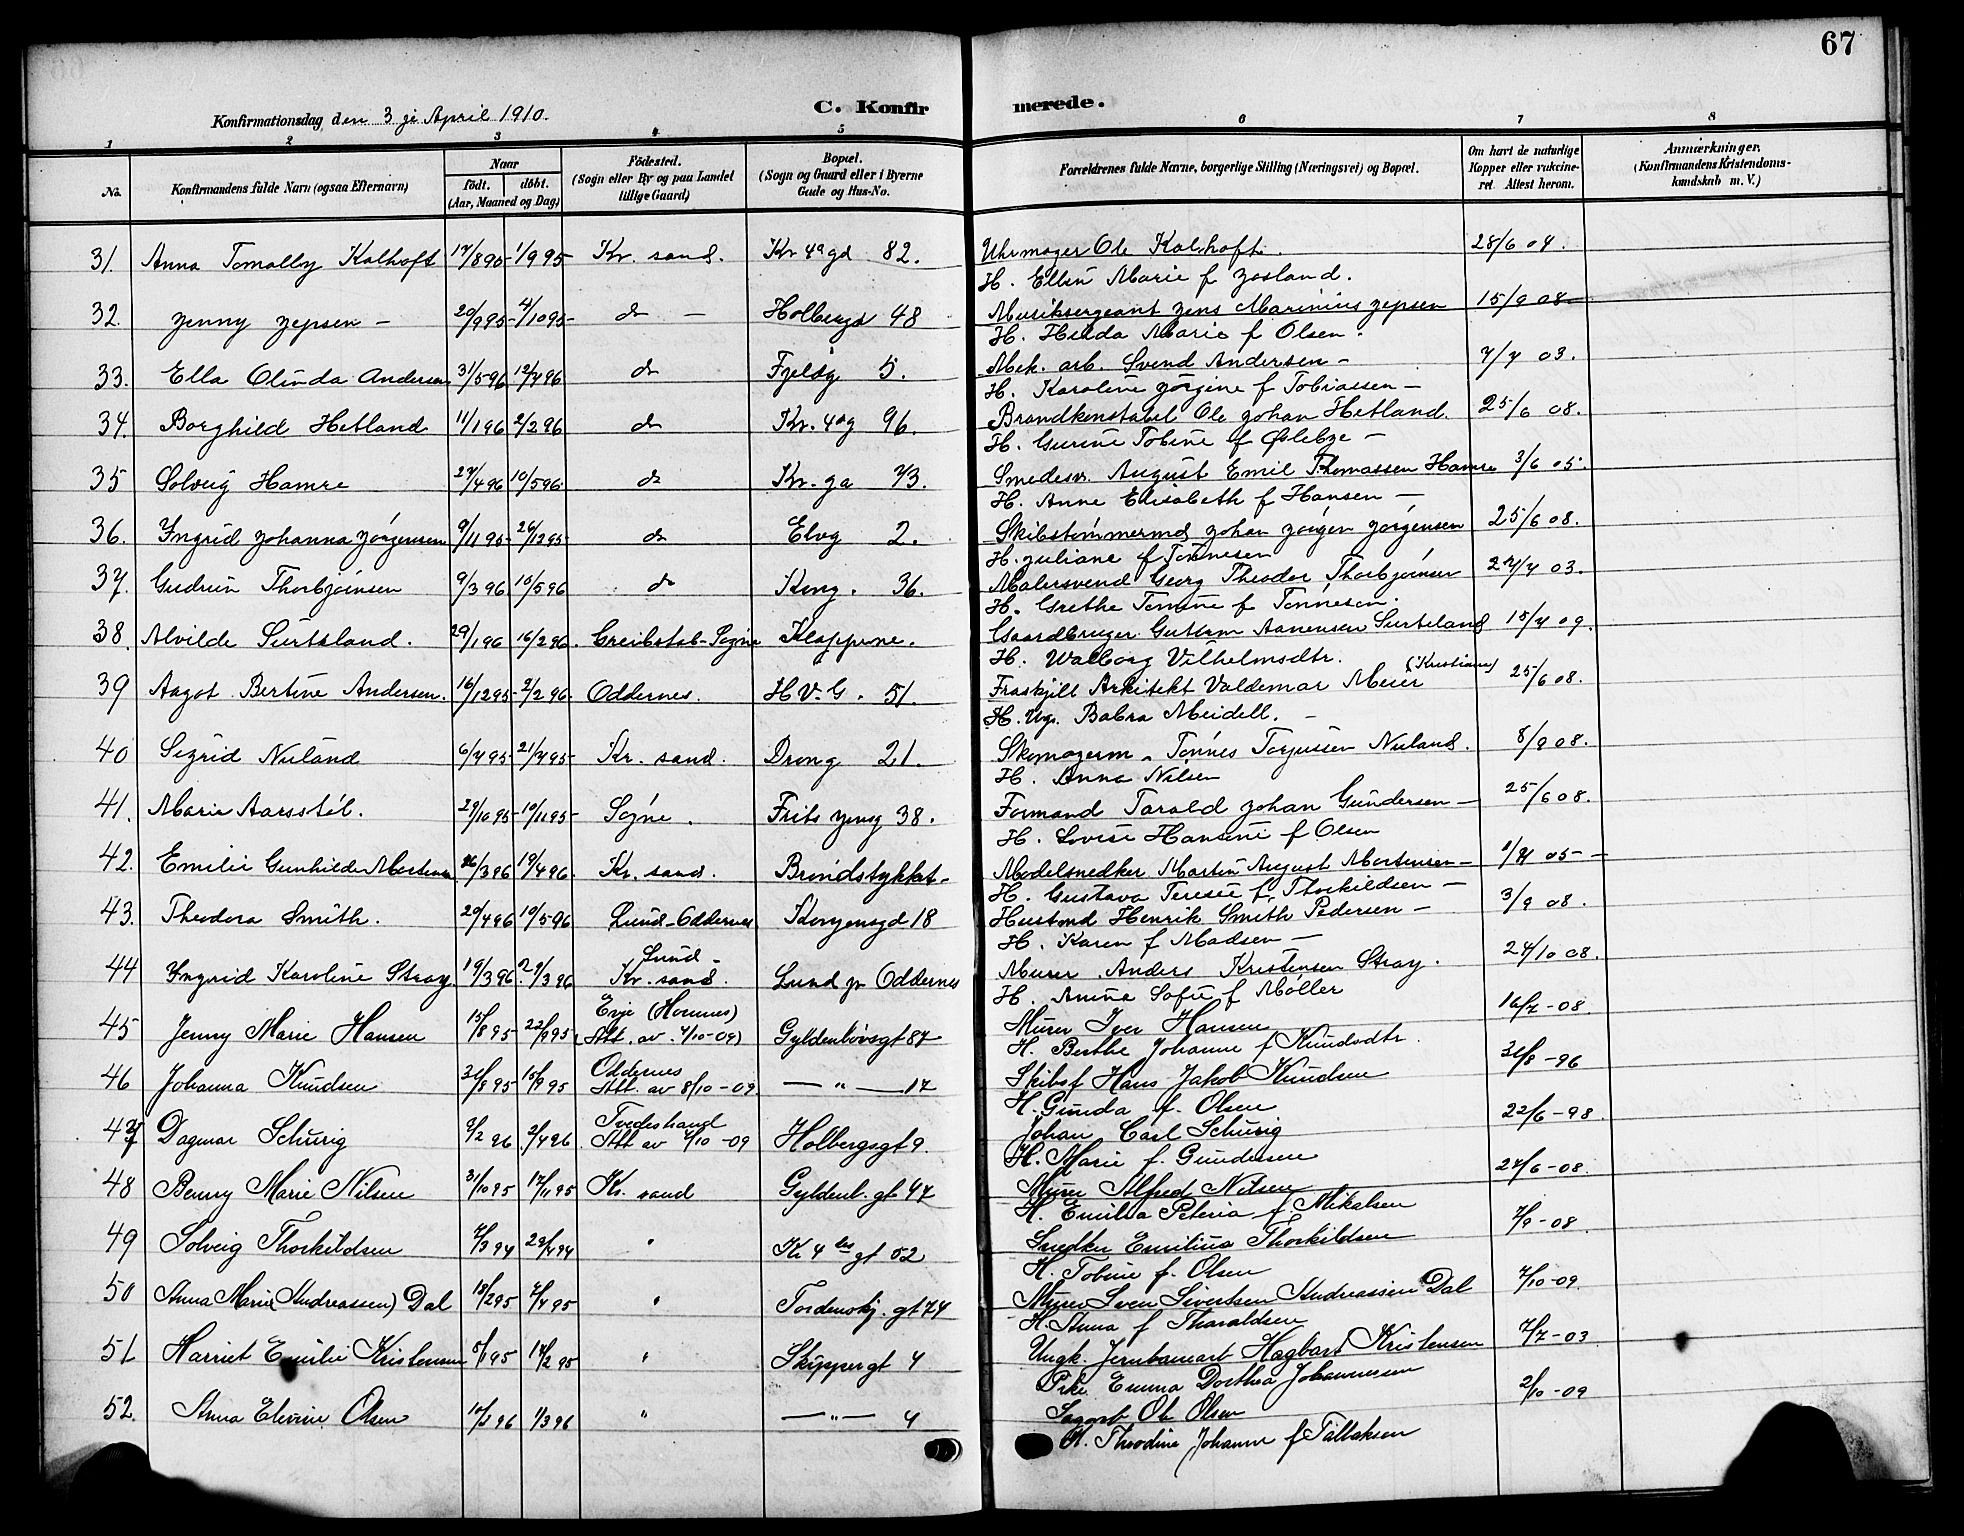 67
Konfirmationsdag den 3je April 1910.
C. Konfirmerede.
1 2 3 4 5 6 7 8
No.
Konfirmandens fulde Navn (ogsaa Efternavn)
Naar
födt. döbt.
(Aar, Maaned og Dag)
Födested.
(Sogn eller By og paa Landet
tillige Gaard)
Bopæl.
(Sogn og Gaard eller i Byerne
Gade og Hus-No.
Forældrenes fulde Navne, borgerlige Stilling (Næringsvei) og Bopæl.
Om havt de naturlige
Kopper eller vakcine-
ret. Attest herom.
Anmærkninger.
(Konfirmandens Kristendoms-
kundskab m. V.)
31. Anna Tomally Kalhoft 17/8 95 1/9 95 Kr. sand. Kr 4a gd 82. Uhrmager Ole Kalhoft. 28/6 04.
H. Ellen Marie f Josland.
32. Jenny Jepsen - 20/9 95 4/10 95 do - Holbergd 48 Musiksergeant Jens Marinius Jepsen 15/9 08
H. Hilda Marie f Olsen.
33. Ella Olinda Andersen 31/5 96 12/7 96 do Fjeldg 5. Mek. arb. Svend Andersen - 7/7 03.
H. Karoline Jörgine f Tobiassen -
34. Borghild Hetland 11/1 96 2/2 96 do Kr. 4a g 96. Brandkonstabel Ole Johan Hetland. 25/6 08.
H. Gurine Tobine f -
35 Solveig Hamre 27/4 96 10/5 96 do Kr. ga 73. Smedesv. August Emil Thomassen Hamre 3/6 05.
H. Anne Elisabeth f Hansen -
36. Yngrid Johanna Jörgensen 9/11 95 26/12 95 do Elvg 2. Skibstömmermd Johan Jörgen Jörgensen 25/6 08.
H. Juliane f Tönnesen
37. Gudrun Thorbjörnsen 9/3 96 10/5 96 do Kong. 36. Malersvend Georg Theodor Thorbjörnsen 27/7 03.
H. Grethe Tomine f Tönnesen.
38. Alvilde Surteland. 29/1 96 16/2 96. Greibstad-Sogne Kleppene. Gaardbruger Guttorm Aanensen Surteland 15/7 09.
H. Walborg Vilhelmsdtr.
39 Aagot Bertine Andersen. 16/12 95 2/2 96. Oddernes. H.V.G. 51. Fraskjilt Arkitekt Valdemar Meier (Kristiania) 25/6 08.
H. Ugr. Babra Meidell. -
40 Sigrid Nuland 6/4 95 21/4 95 Kr. sand. Drong 21. Skomagerm. Tönnes Torjussen Nuland. 8/9 08.
H. Anna Nilsen
41. Marie Aarsstöl. 29/10 95 10/11 95 Sögne. Frits Jensg 38. Formand Tarald Johan Gundersen - 25/6 08.
H. Lovise Hansine f Olsen
42. Emilie Gunhilde Mortensen 26/3 96 19/4 96. Kr. sand. Bröndstykket - Modelsnedker Martin August Mortensen - 05 -
H. Gustava Terese f Thorkildsen -
43. Theodora Smith. 20/4 96 10/5 96 Lund-Oddernes Kongensgd 18 Henrik Smith Pedersen - 3/9 08.
H. Karen f Madsen -
44 Yngrid Karoline Stray. 19/3 96 29/3 96 Lund - Kr. sand. Lund pr Oddernes Murer Anders Kristensen Stray. 24/10 08.
H. Amina Sofie f Möller
45 Jenny Marie Hansen 15/8 95 22/9 95 Evje (Hornnes) (Att. av. 7/10-09) Gyldenlövsgt 87 Murer Iver Hansen 16/7-08.
H. Berthe Johanne f Knudsdtr.
46 Johanna Knudsen 31/8 95 15/9 95 Oddernes Att. av 8/10-09. — " — 17 Skibsf Hans Jakob Knudsen 31/8-96
H. Gunda f. Olsen
47 Dagmar Schurig 9/2 96 2/4 96 Tvedestrand Att av 7/10-09 Holbergsgt 9. Johan Carl Schurig 22/6-98.
H. Marie f. Gundersen
48 Benny Marie Nilsen 31/10 95 17/11 95 Kr. sand Gyldenl. gt 47 Murer Alfred Nilsen 27/6-08.
H. Emilia Peteria f Mikalsen
49 Solveig Thorkildsen 7/3 94 29/4 94 " Kr 4de gt 52 Snedker Emilius Thorkildsen 7/9-08
H. Tobine f. Olsen
50 Anna Marie (Andreassen) Dal 18/2 95 7/4 95 " Tordenskj. gt 74 Murer Sven Sivertsen Andreassen Dal 7/10-09.
H. Anna f Tharaldsen
51 Harriet Emilie Kristensen 5/1 95 17/2 95 " Skippergt 4 Ungk. Jernbanearb Hagbart Kristensen 7/7-03
Pike Emma Dorthea Johannessen
52. Anna Elevine Olsen 10/1 96 1/3 96 " — " — 4 Sagarb Ole Olsen 2/10-09
H. Theodine Johanne f Tallaksen